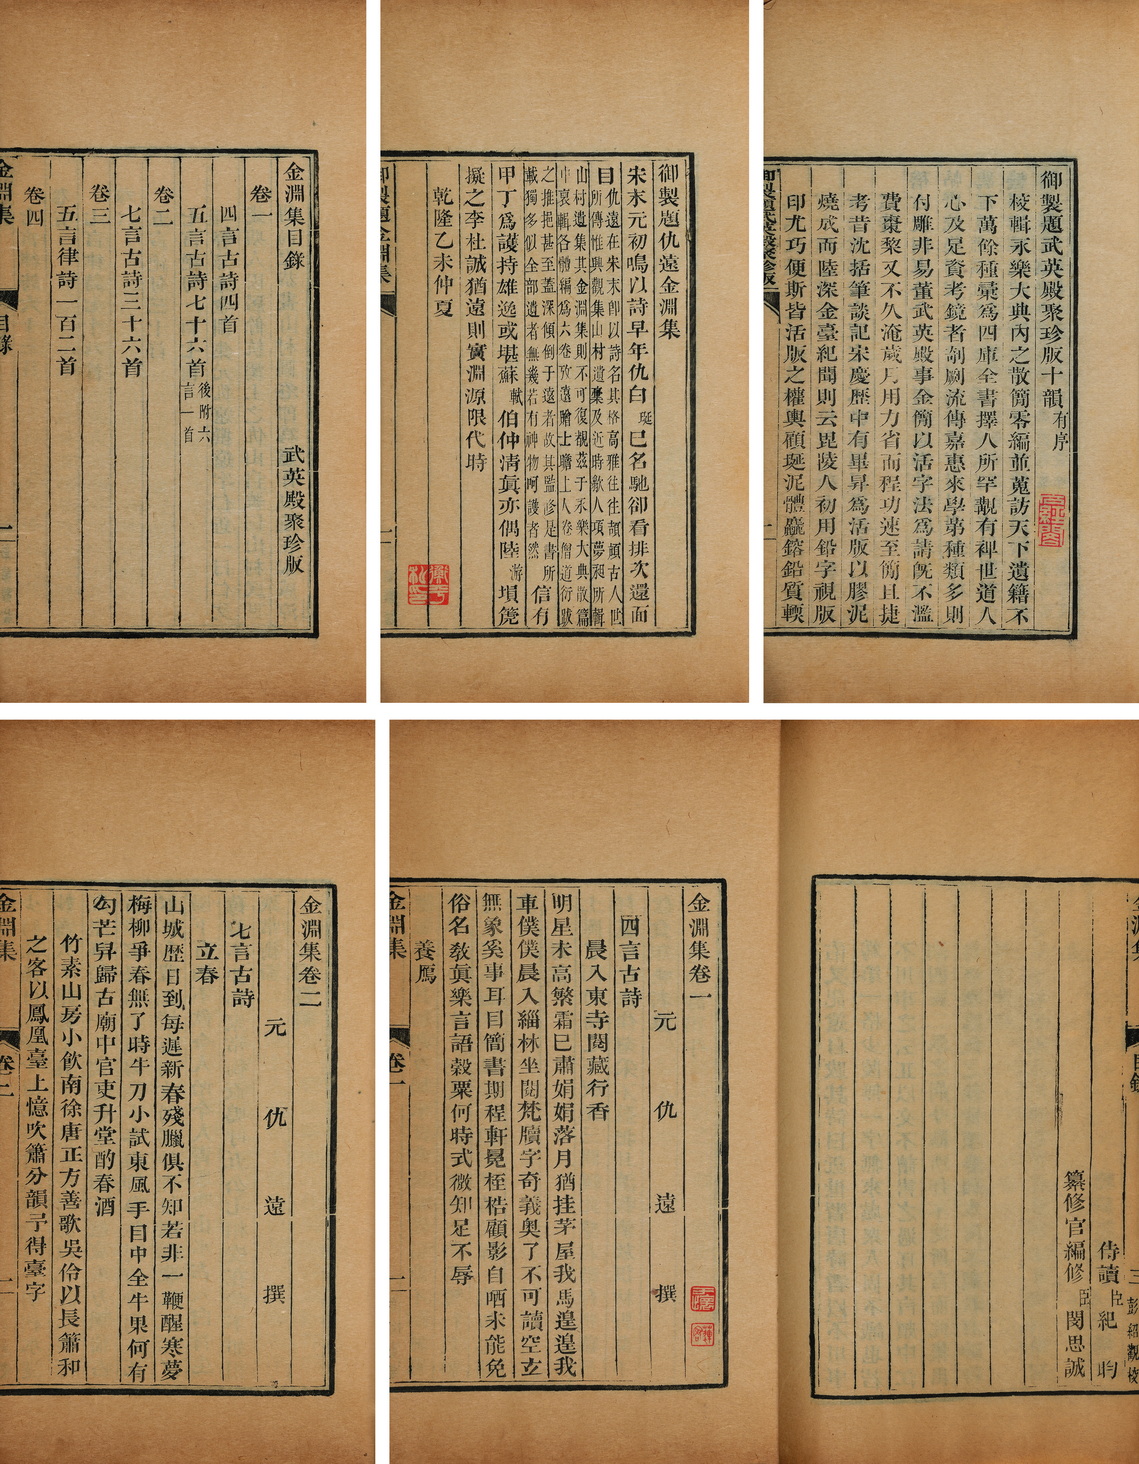 御製題武英殿聚珍版十韻有序
校輯永樂大典內之散簡零編並蒐訪天下遺籍不
下萬餘種彙爲四庫全書擇人所罕覯有裨世道人
心及足資考鏡者剞劂流傳嘉惠來學第種類多則
付雕非易董武英殿事金簡以活字法爲請旣不濫
費棗棃又不久淹歲月用力省而程功速至簡且捷
考昔沈括筆談記宋慶歷中有畢昇爲活版以膠泥
燒成而陸深金臺紀聞則云毘陵人初用鉛字視版
印尤巧便斯皆活版之權輿顧埏泥體麤鎔鉛質輭
御製題武英殿聚珍版
御製題仇遠金淵集
宋末元初鳴以詩早年仇白珽巳名馳卻看排次還面
目仇遠在宋末卽以詩名其格高雅往往頡頏古人世
所傳惟興觀集山村遺稾及近時歙人項夢昶所輯
山村遺集其金淵集則不可復覩茲于永樂大典散篇
中裒輯各體編爲六卷攷遠贈士瞻上人卷僧道衍跋
之推挹甚至蓋深傾倒于遠者故其監修是書所
載獨多似全部遺者無幾若有神物呵護者然信有
甲丁爲護持雄逸或堪蘇軾伯仲淸眞亦偶陸游塤箎
擬之李杜誠猶遠則實淵源限代時
乾隆乙未仲夏
御製題金淵集
金淵集目錄
武英殿聚珍版
卷一
四言古詩四首
五言古詩七十六首後附六言一首
卷二
七言古詩三十六首
卷三
五言律詩一百二首
卷四
金淵集
目錄
一
金淵集
目錄
三
彭紹觀校
侍讀臣紀昀
纂修官編修臣閔思誠
金淵集卷一
元仇遠撰
四言古詩
晨入東寺閱藏行香
明星未高繁霜巳肅娟娟落月猶挂茅屋我馬遑遑我
車僕僕晨入緇林坐閱梵牘字奇義奧了不可讀空立
無象奚事耳目簡書期程軒冕桎梏顧影自哂未能免
俗名敎眞樂言語穀粟何時式微知足不辱
養鴈
金淵集
卷一
一
金淵集卷二
元仇遠撰
七言古詩
立春
山城歷日到每遲新春殘臘俱不知若非一鞭醒寒夢
梅柳爭春無了時牛刀小試東風手目中全牛果何有
勾芒舁歸古廟中官吏升堂酌春酒
竹素山房小飮南徐唐正方善歌吳伶以長簫和
之客以鳳凰臺上憶吹簫分韻予得臺字
金淵集
卷二
一